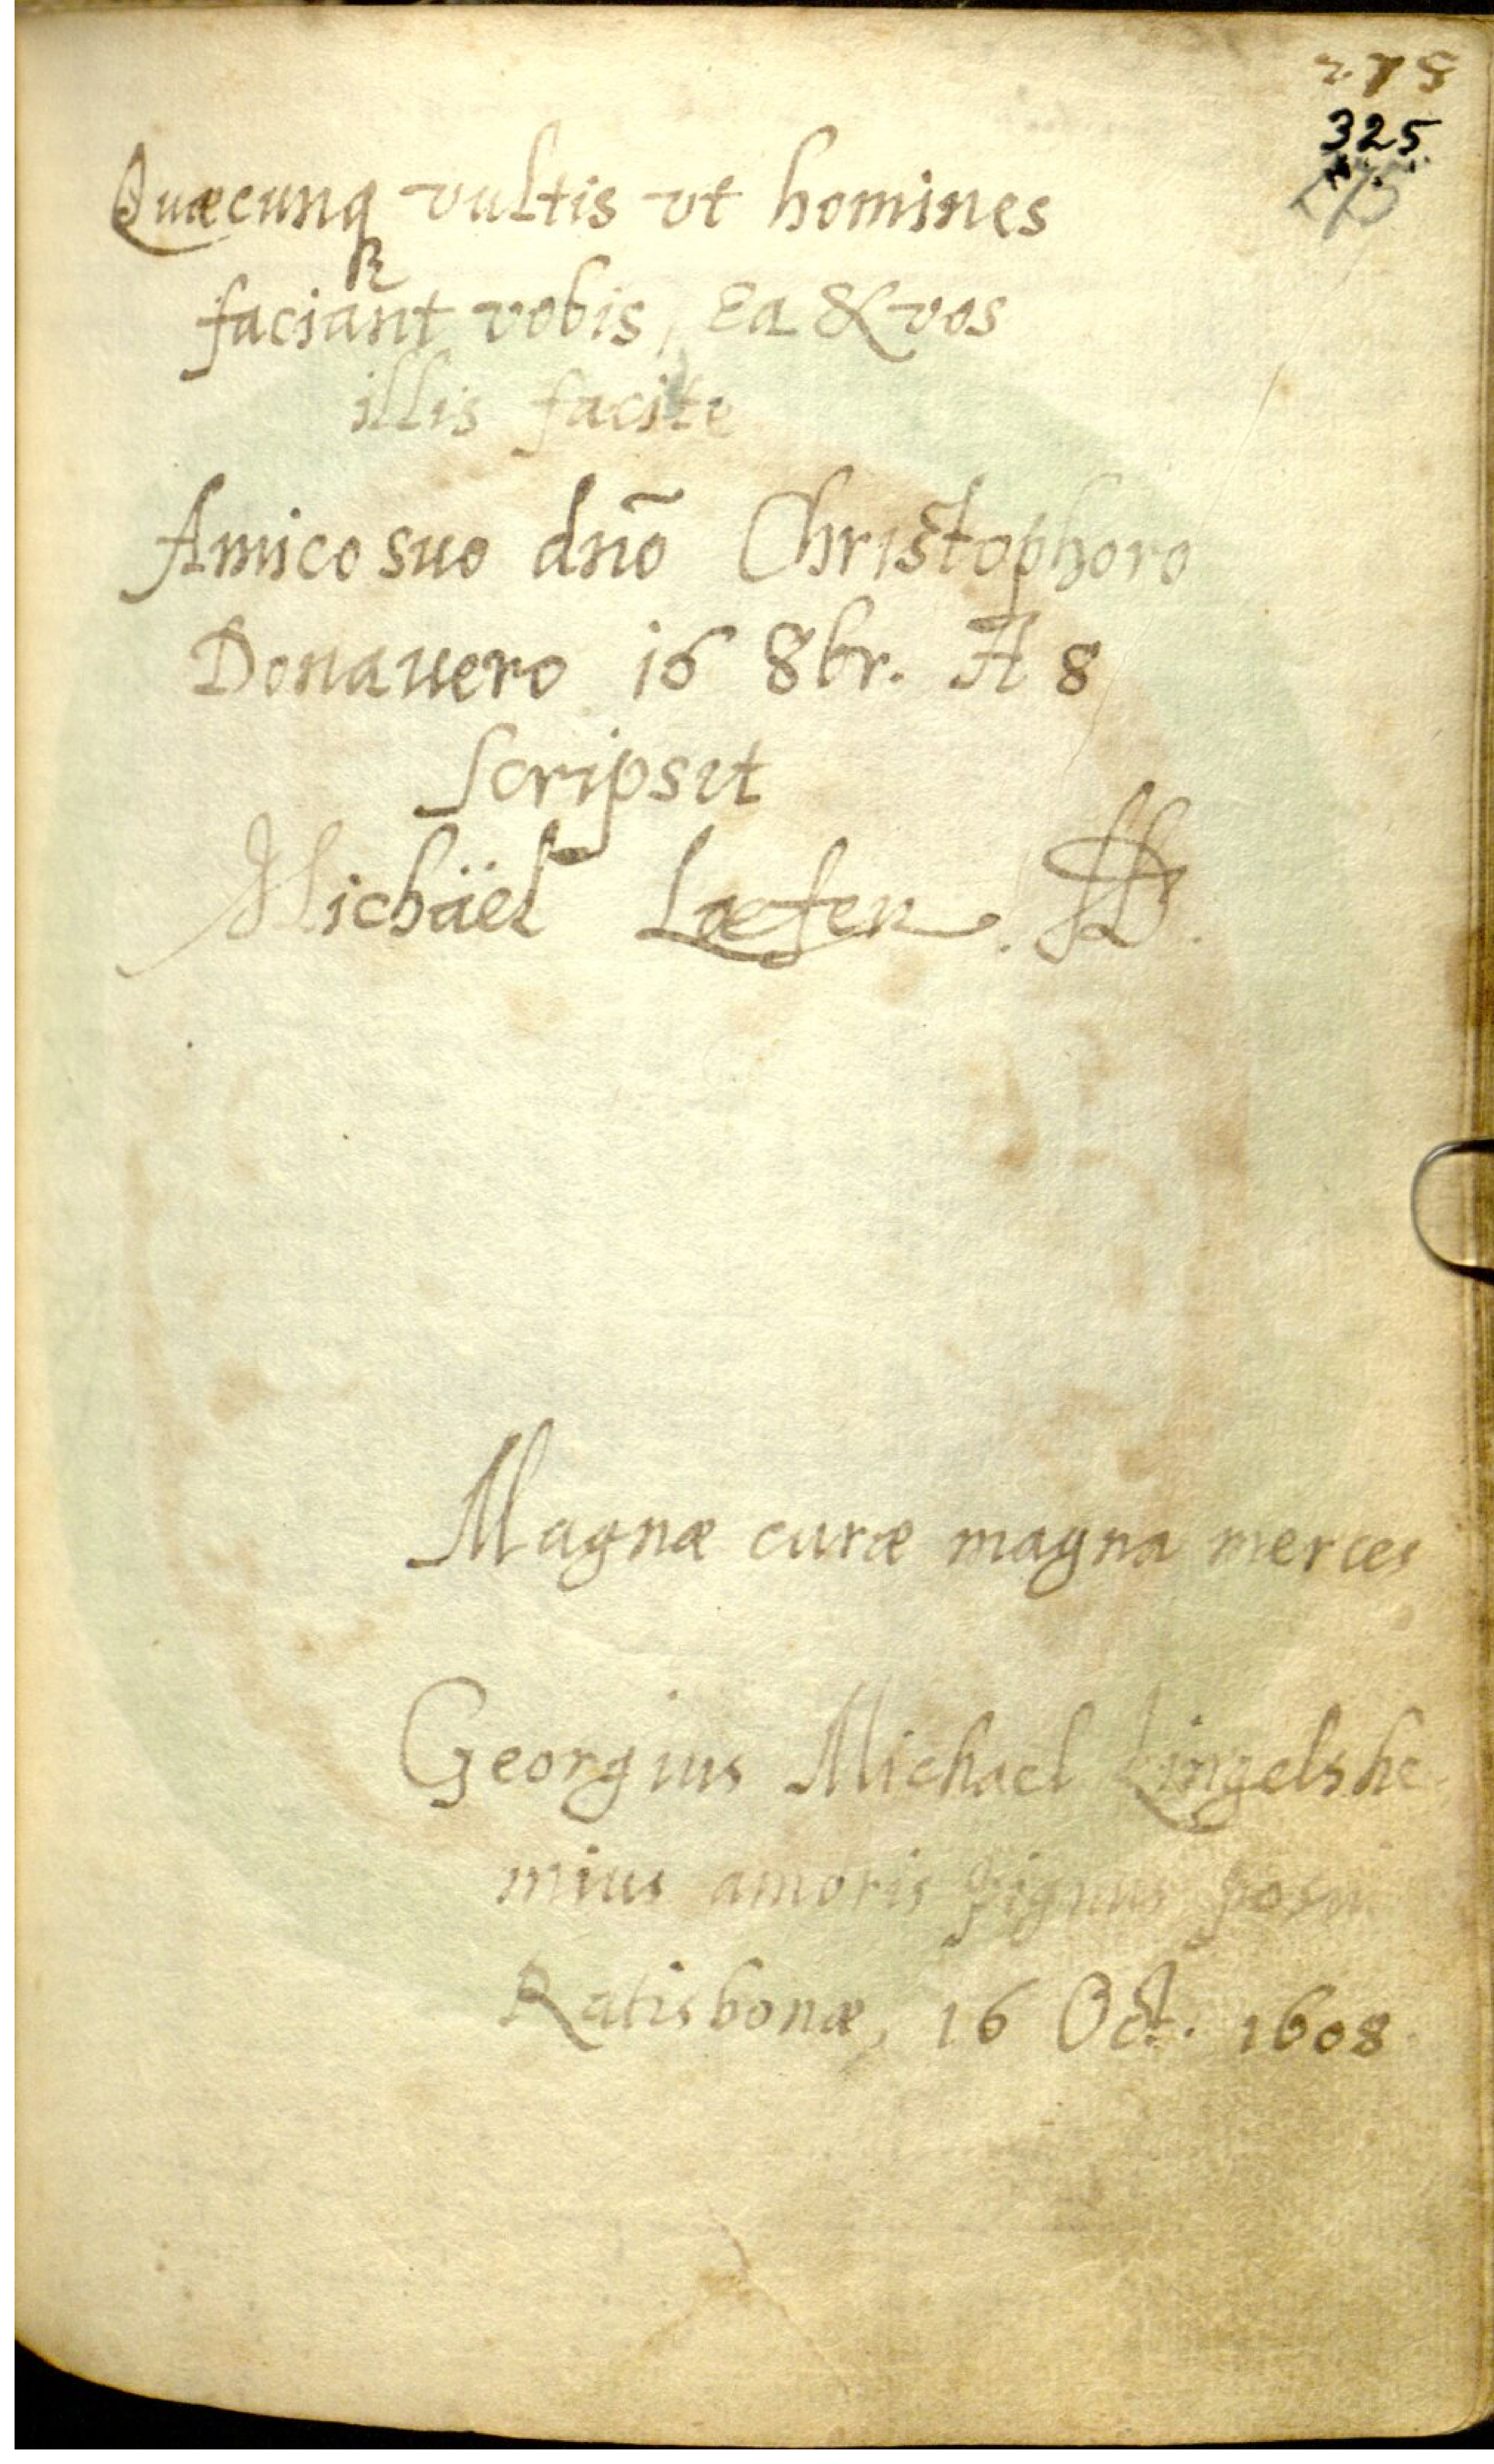 275
325
275
Quæcunq
vultis vt homines
faciant vobis, Ea & vos
illis facite
Amico suo dn̄o Christophoro
Donauero 16 8br. A 8
Scripsit
Michäel Loefen. D.
Magnæ curæ magna merces
Georgius Michael Lingelshe-
mius amoris pignus posui
Ratisbonæ, 16 Oct. 1608